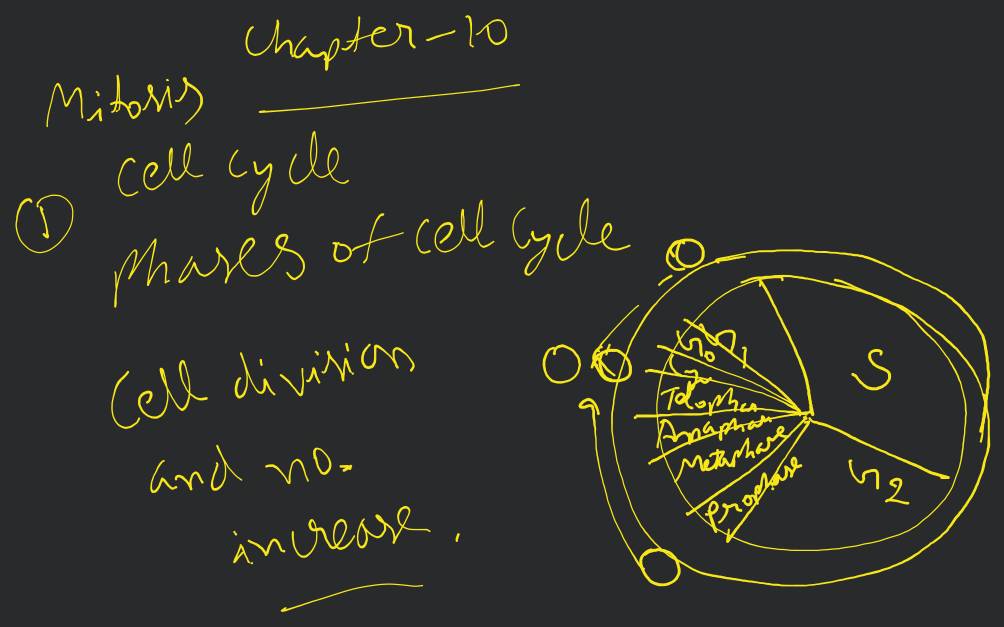 Chapter-10
Mitosis
Cell cycle
①
Phases of cell cycle
Cell division
and no.
increase.
G0
G1
S
Telophase
Anaphase
Metaphase
Prophase
G2